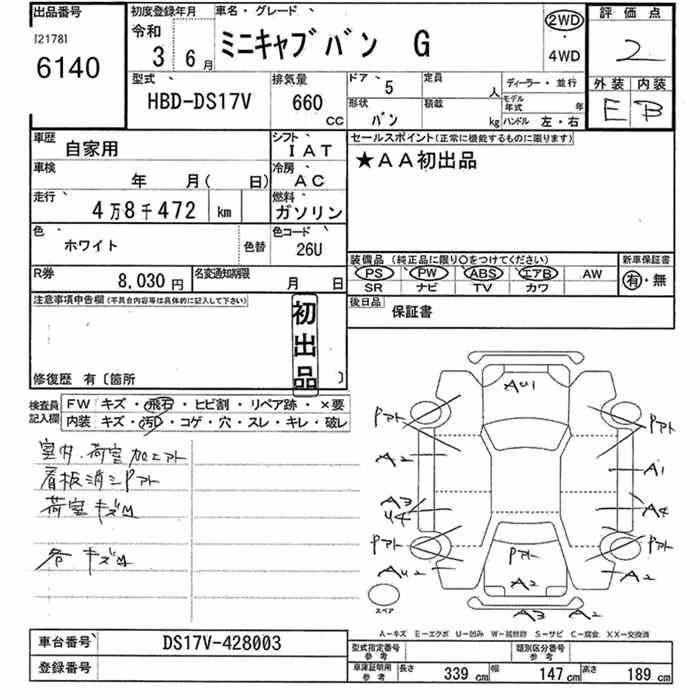 出品番号 初度登録年月 車名・グレード 評価点
[2178] 6140 令和 3年 6月 ミニキャブバン G 2WD・4WD 2
型式 HBD-DS17V 排気量 660 CC ドア 5 定員 人 ディーラー・並行 外装 内装
形状 バン 積載 kg モデル年式 年 ハンドル 左・右 E B
車歴 自家用 シフト IAT セールスポイント(正常に機能するものに限ります)
車検 年 月( 日) 冷房 AC ★AA初出品
走行 4万8千472 km 燃料 ガソリン
色 ホワイト 色替 色コード 26U
装備品 (純正品に限り○をつけてください) 新車保証書
R券 8,030円 名変通知期限 月 日 PS PW ABS エアB AW 有・無
SR ナビ TV カワ
注意事項申告欄(不具合内容等は具体的に記入して下さい) 初出品 後日品 保証書
修復歴 有〔箇所 〕
検査員記入欄 FW キズ・飛石・ヒビ割・リペア跡・×要
内装 キズ・汚レ・コゲ・穴・スレ・キレ・破レ
室内、荷室加工アト
看板消シPアト
荷室キズ凹
各キズ凹
AU1
Pアト Pアト
A2 A1
A3 U4 A4
Pアト Pアト Pアト
AU2 A2 A2
スペア A3 A2
A-キズ E-エクボ U-凹み W-補修跡 S-サビ C-腐食 XX-交換済
車台番号 DS17V-428003 型式指定番号 参考 類別区分番号 参考
登録番号 車庫証明用参考 長さ 339cm 幅 147cm 高さ 189cm